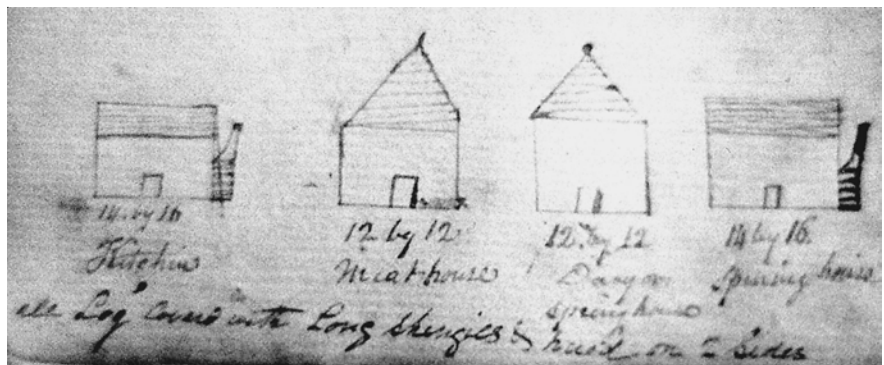 14 by 16
Kitchin
12 by 12
Meathouse
12 by 12
Dary or
springhouse
14 by 16
Spining house
all Log Coverd with Long Shengles & on 2 Sides